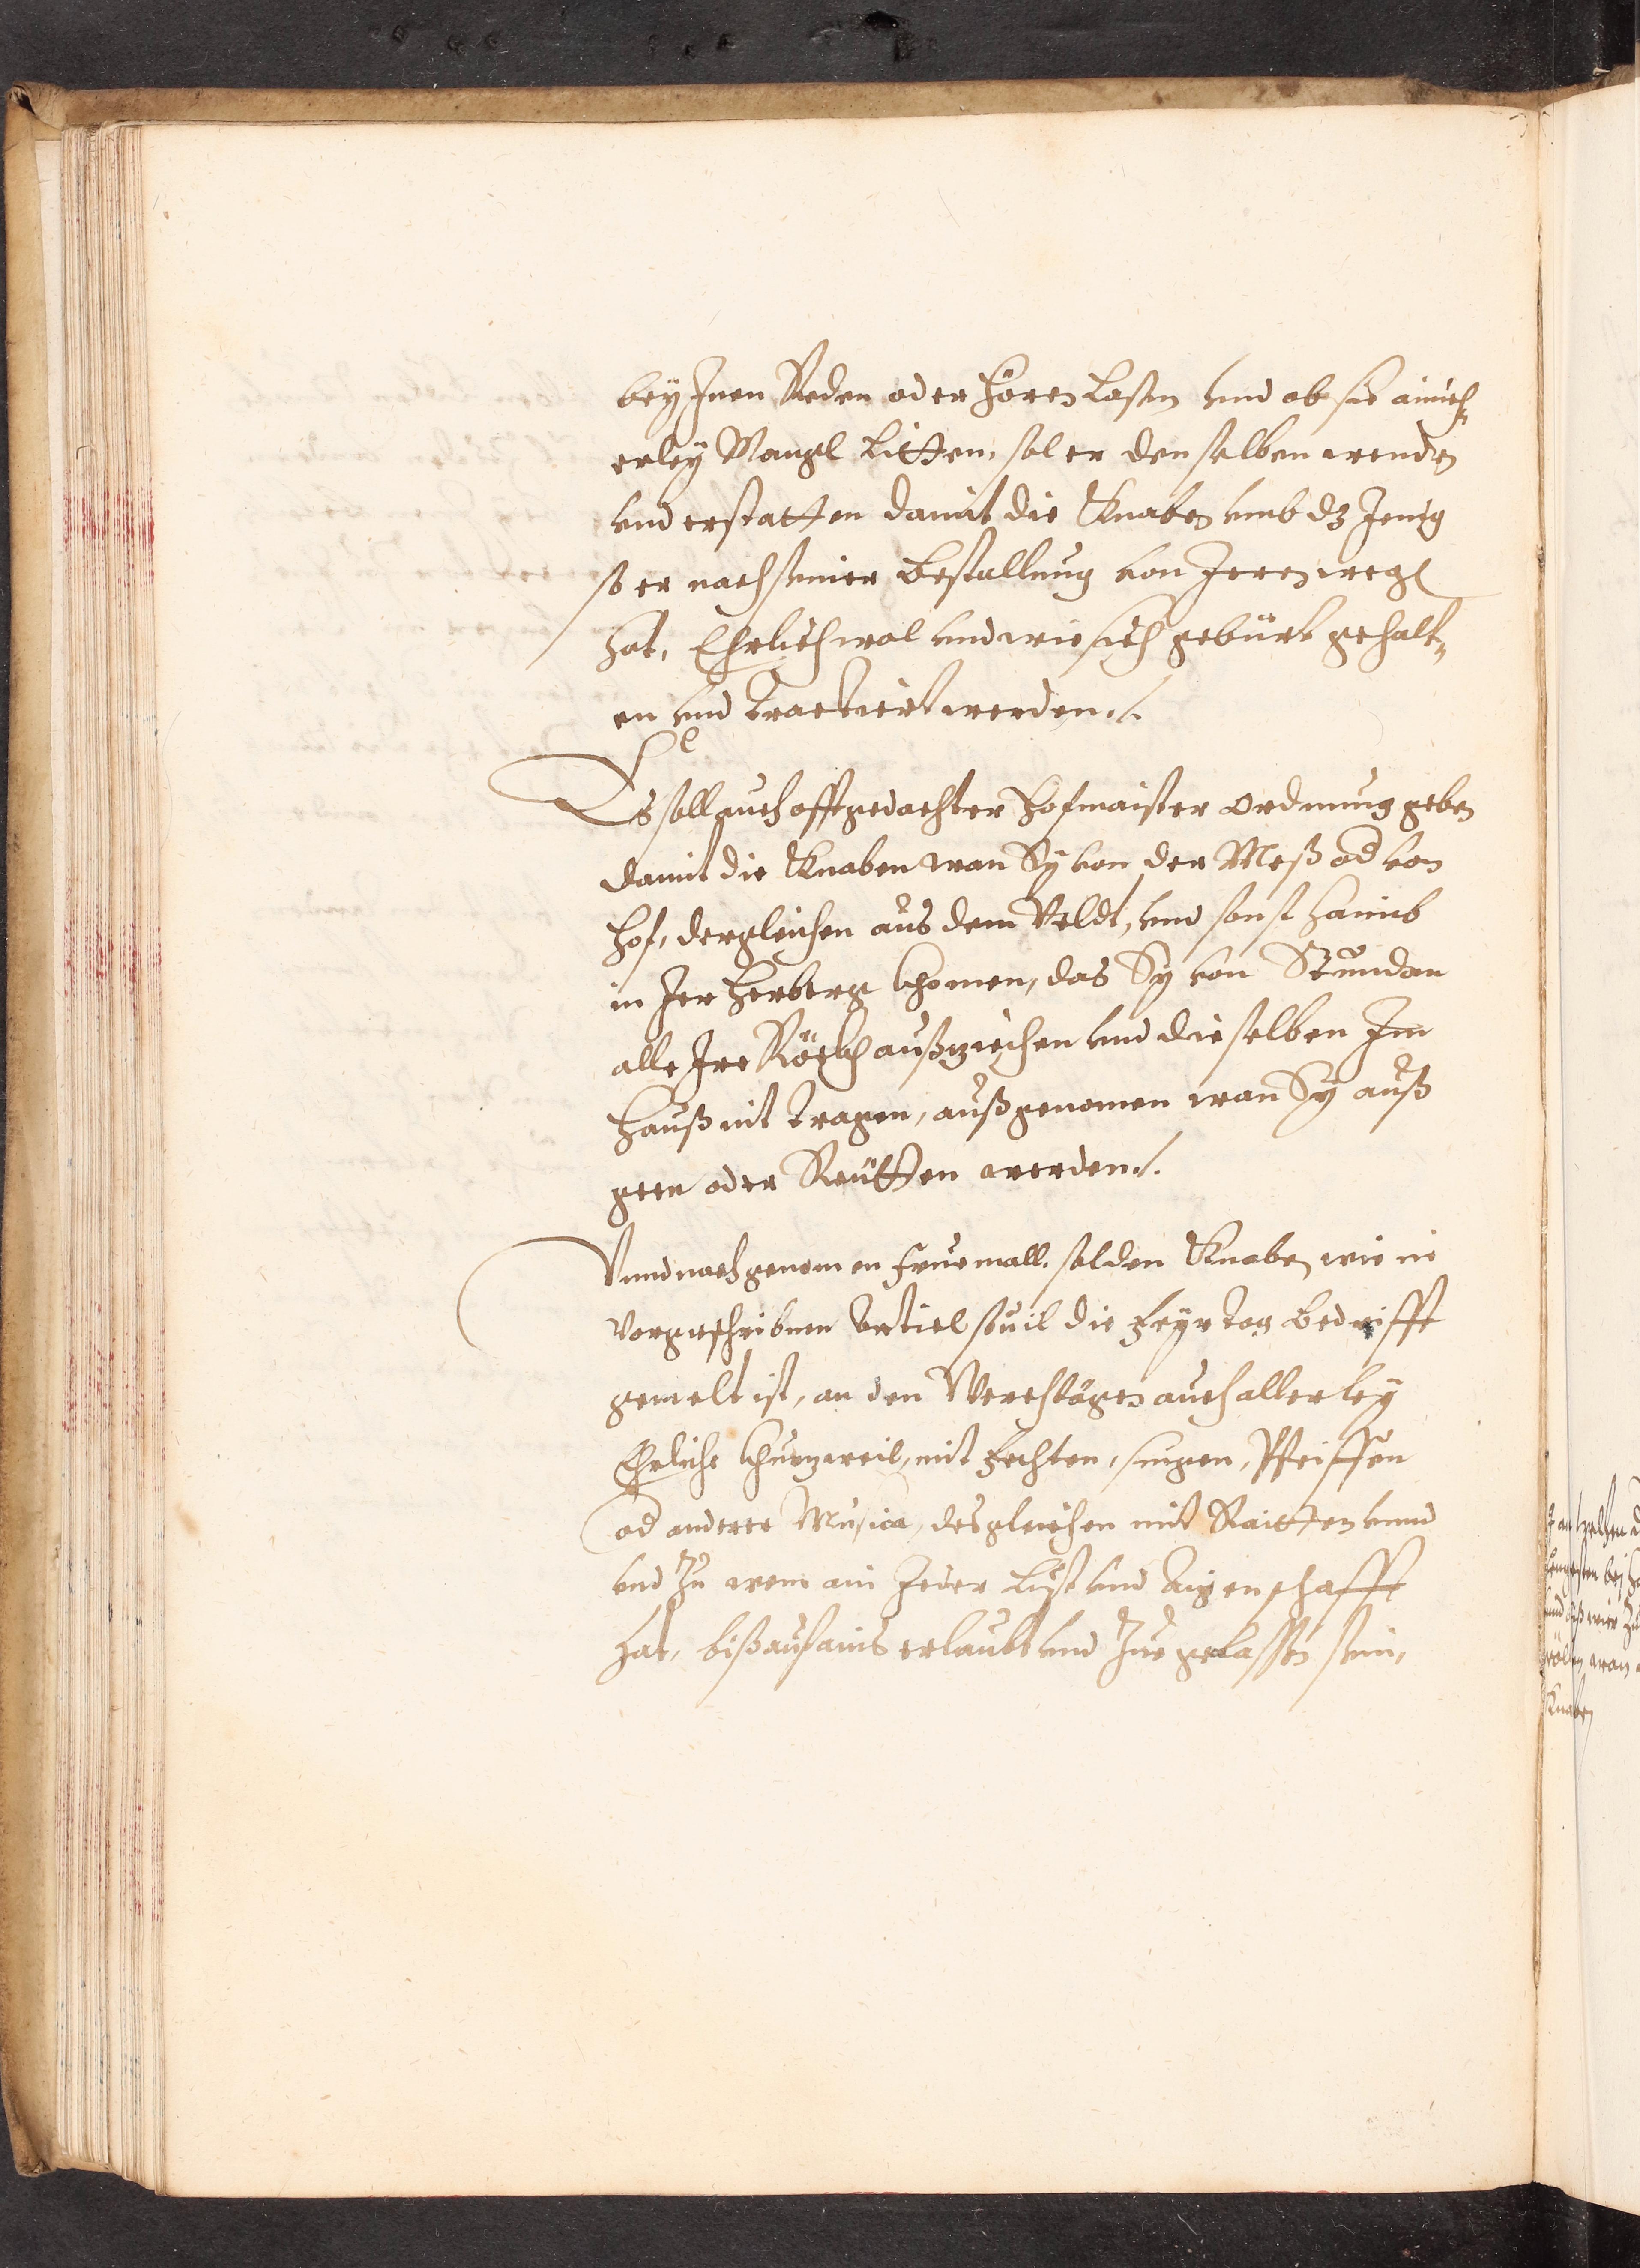 bey Inen Reden oder hören lassen vnd ob sie ainich¬
erley Mangl litten, sol er denselben wenden
vnd erstatten damit die Knaben vmb dz Jenig
so er nach seiner bestallung von Iren wegen
hat, Ehrlich wol vnd wie sich gebürt gehalt¬
en vnd tractiert werden ./.
Es soll auch offtgedachter Hofmaister ordnung geben
damit die Knaben wan Sy von der Meß od von
hof, dergleichen aus dem Veldt, vnd sonst haimb
in Ier herberg khomen, das Sy von Stundan
alle Ire Röckh außziechen vnd dieselben Im
hauß nit tragen, außgenomen wan Sy auß
geen oder Reütten werden ./.
Vnnd nach genomen fruemall, sol den Knaben wie in
vorgeschribnen Artiel souil die feyrtag bedrifft
gemelt ist, an den Werchtägen auch allerley
Ehrliche khurzweil, mit fechten, singen, Pfeiffen
od anderer Musica, desgleichen mit Raitten vnnd
vnd zu wem ain Jeder lust vnd Aigenschafft
hat, biß auf ains erlaubt vnd zue gelassen sein,